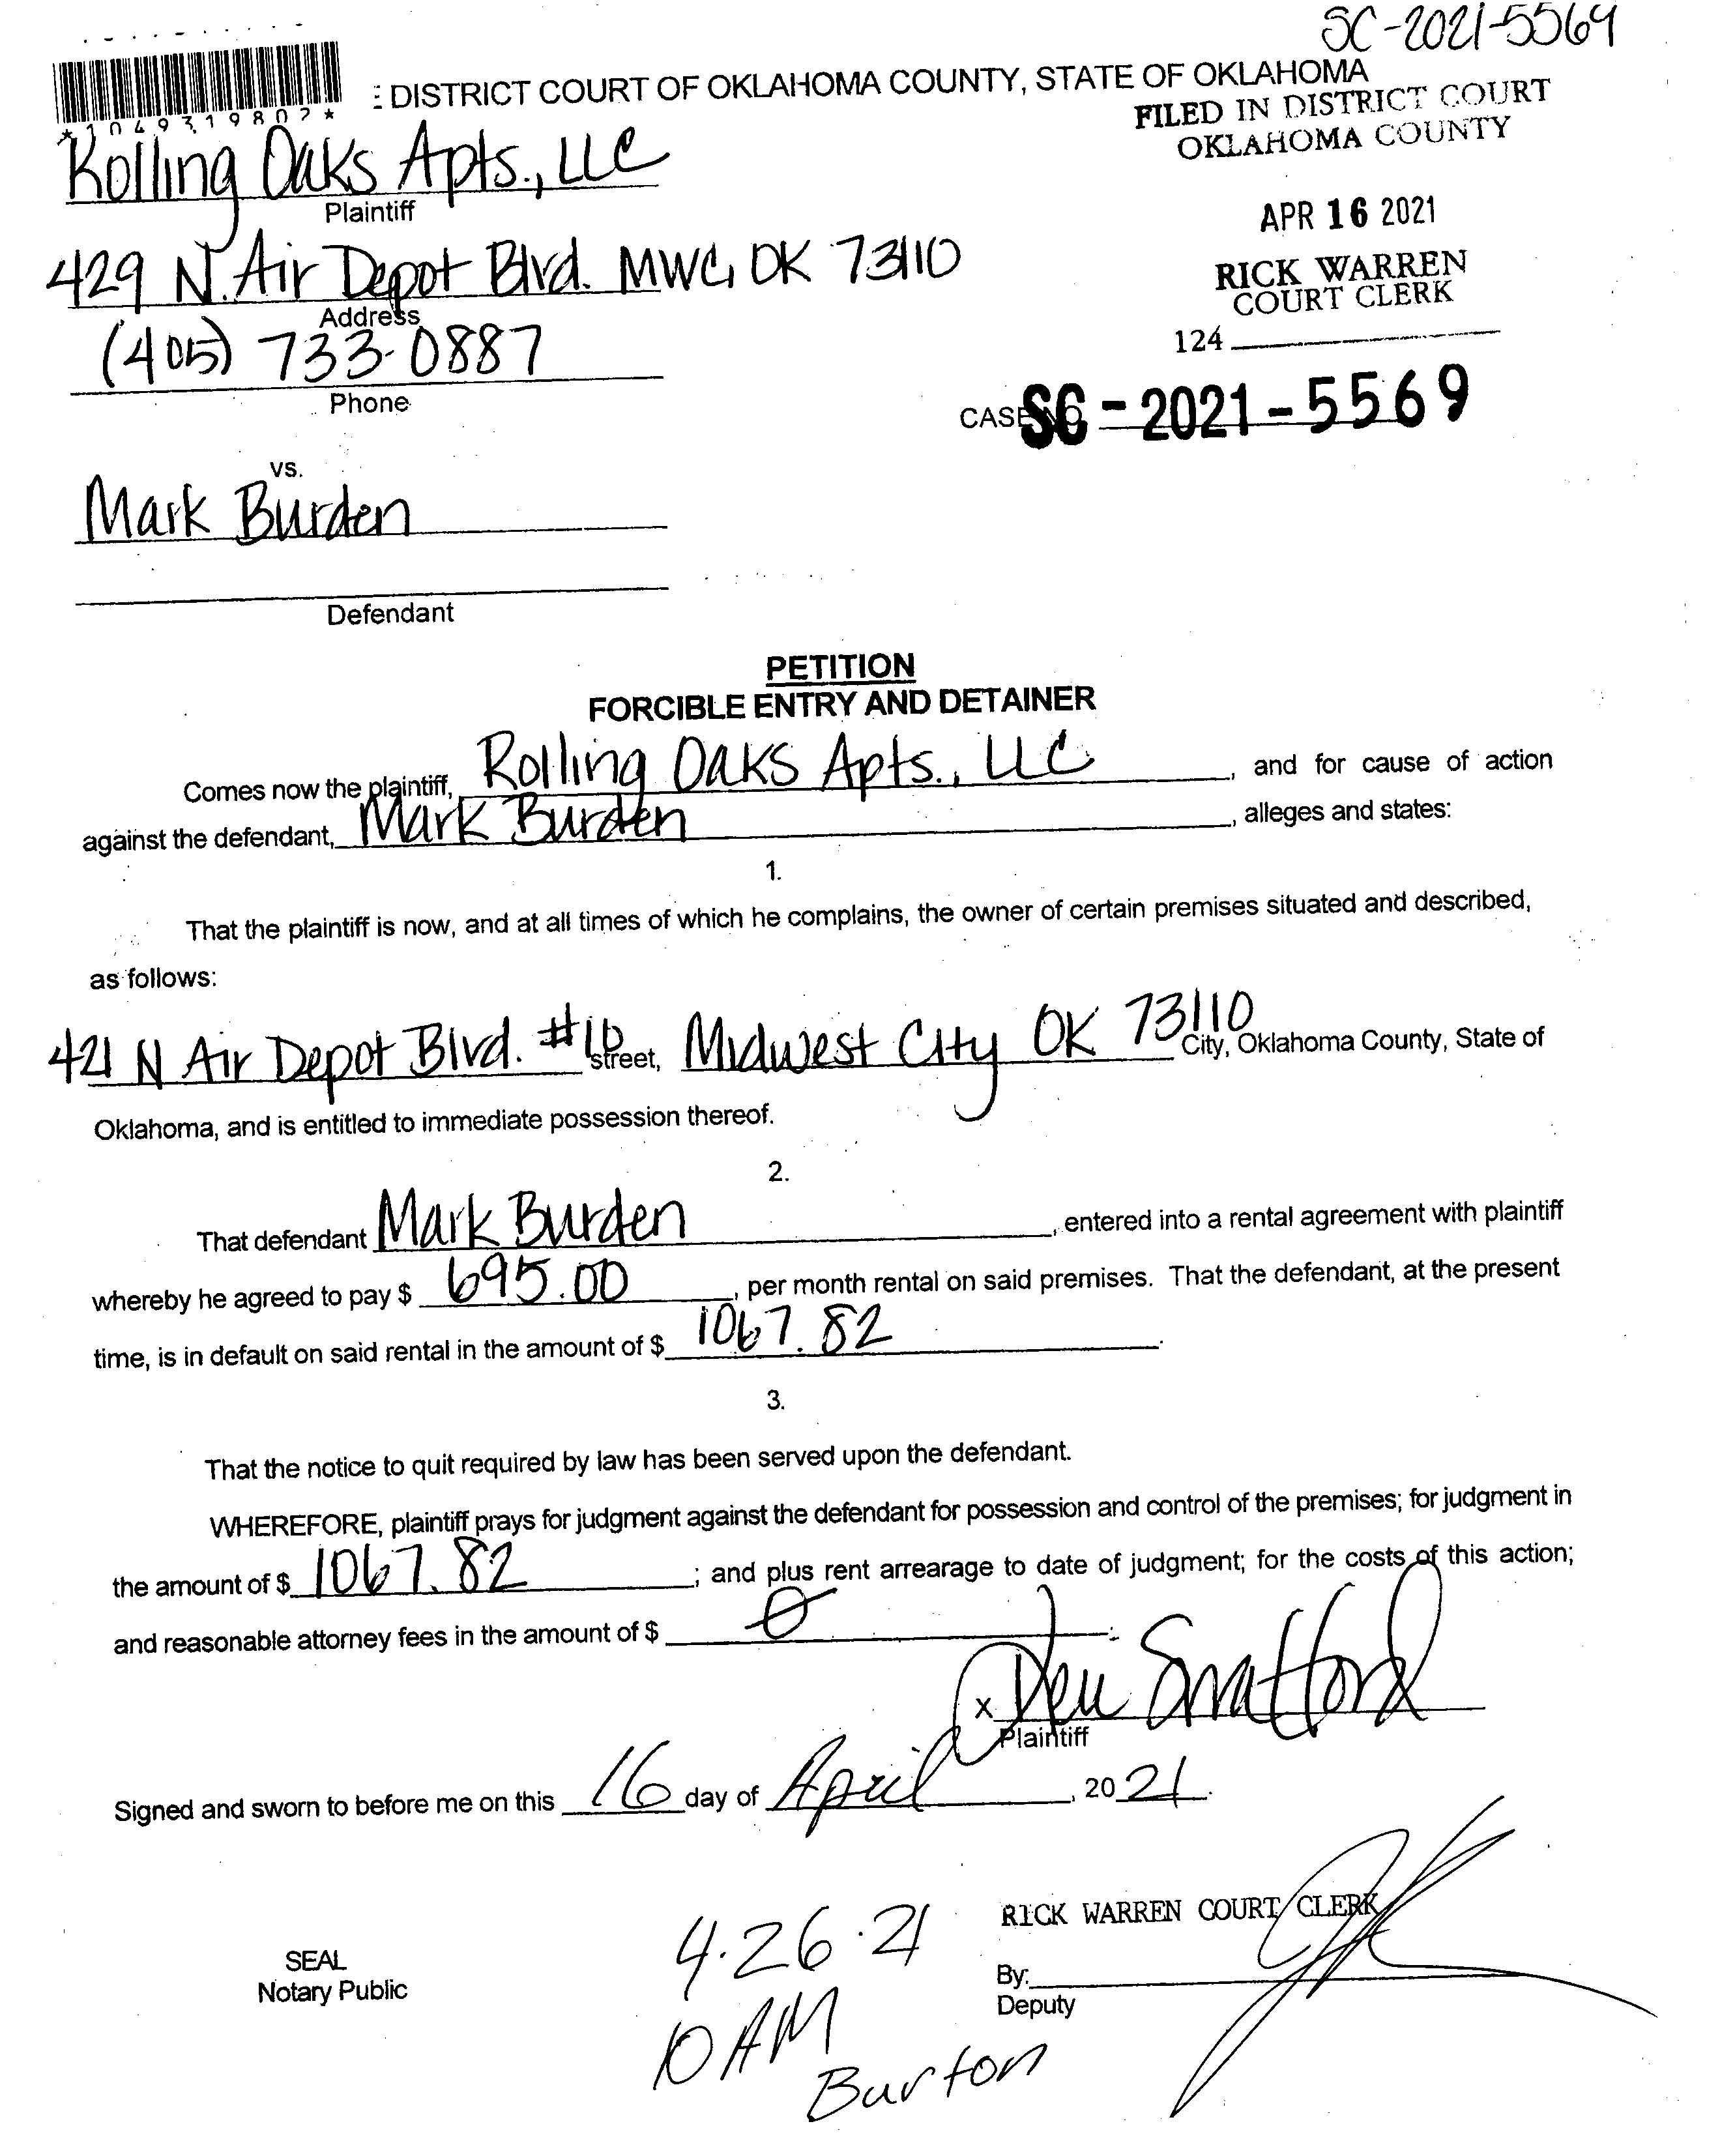 SC-2021-5569
DISTRICT COURT OF OKLAHOMA COUNTY, STATE OF OKLAHOMA
*1049319802*
FILED IN DISTRICT COURT
OKLAHOMA COUNTY
Rolling Oaks Apts., LLC
Plaintiff
APR 16 2021
429 N. Air Depot Blvd. MWC, OK 73110
Address
RICK WARREN
COURT CLERK
(405) 733-0887
124
Phone
CASE NO SC-2021-5569
vs.
Mark Burden
Defendant
PETITION
FORCIBLE ENTRY AND DETAINER
Comes now the plaintiff, Rolling Oaks Apts., LLC, and for cause of action
against the defendant, Mark Burden, alleges and states:
1.
That the plaintiff is now, and at all times of which he complains, the owner of certain premises situated and described,
as follows:
421 N Air Depot Blvd. #16 street, Midwest City OK 73110 City, Oklahoma County, State of
Oklahoma, and is entitled to immediate possession thereof.
2.
That defendant Mark Burden, entered into a rental agreement with plaintiff
whereby he agreed to pay $ 695.00, per month rental on said premises. That the defendant, at the present
time, is in default on said rental in the amount of $ 1067.82.
3.
That the notice to quit required by law has been served upon the defendant.
WHEREFORE, plaintiff prays for judgment against the defendant for possession and control of the premises; for judgment in
the amount of $ 1067.82; and plus rent arrearage to date of judgment; for the costs of this action;
and reasonable attorney fees in the amount of $ 0.
x
Plaintiff
Signed and sworn to before me on this 16 day of April, 2021.
RICK WARREN COURT CLERK
4.26.21
SEAL
Notary Public
By:
Deputy
10 AM
Burton